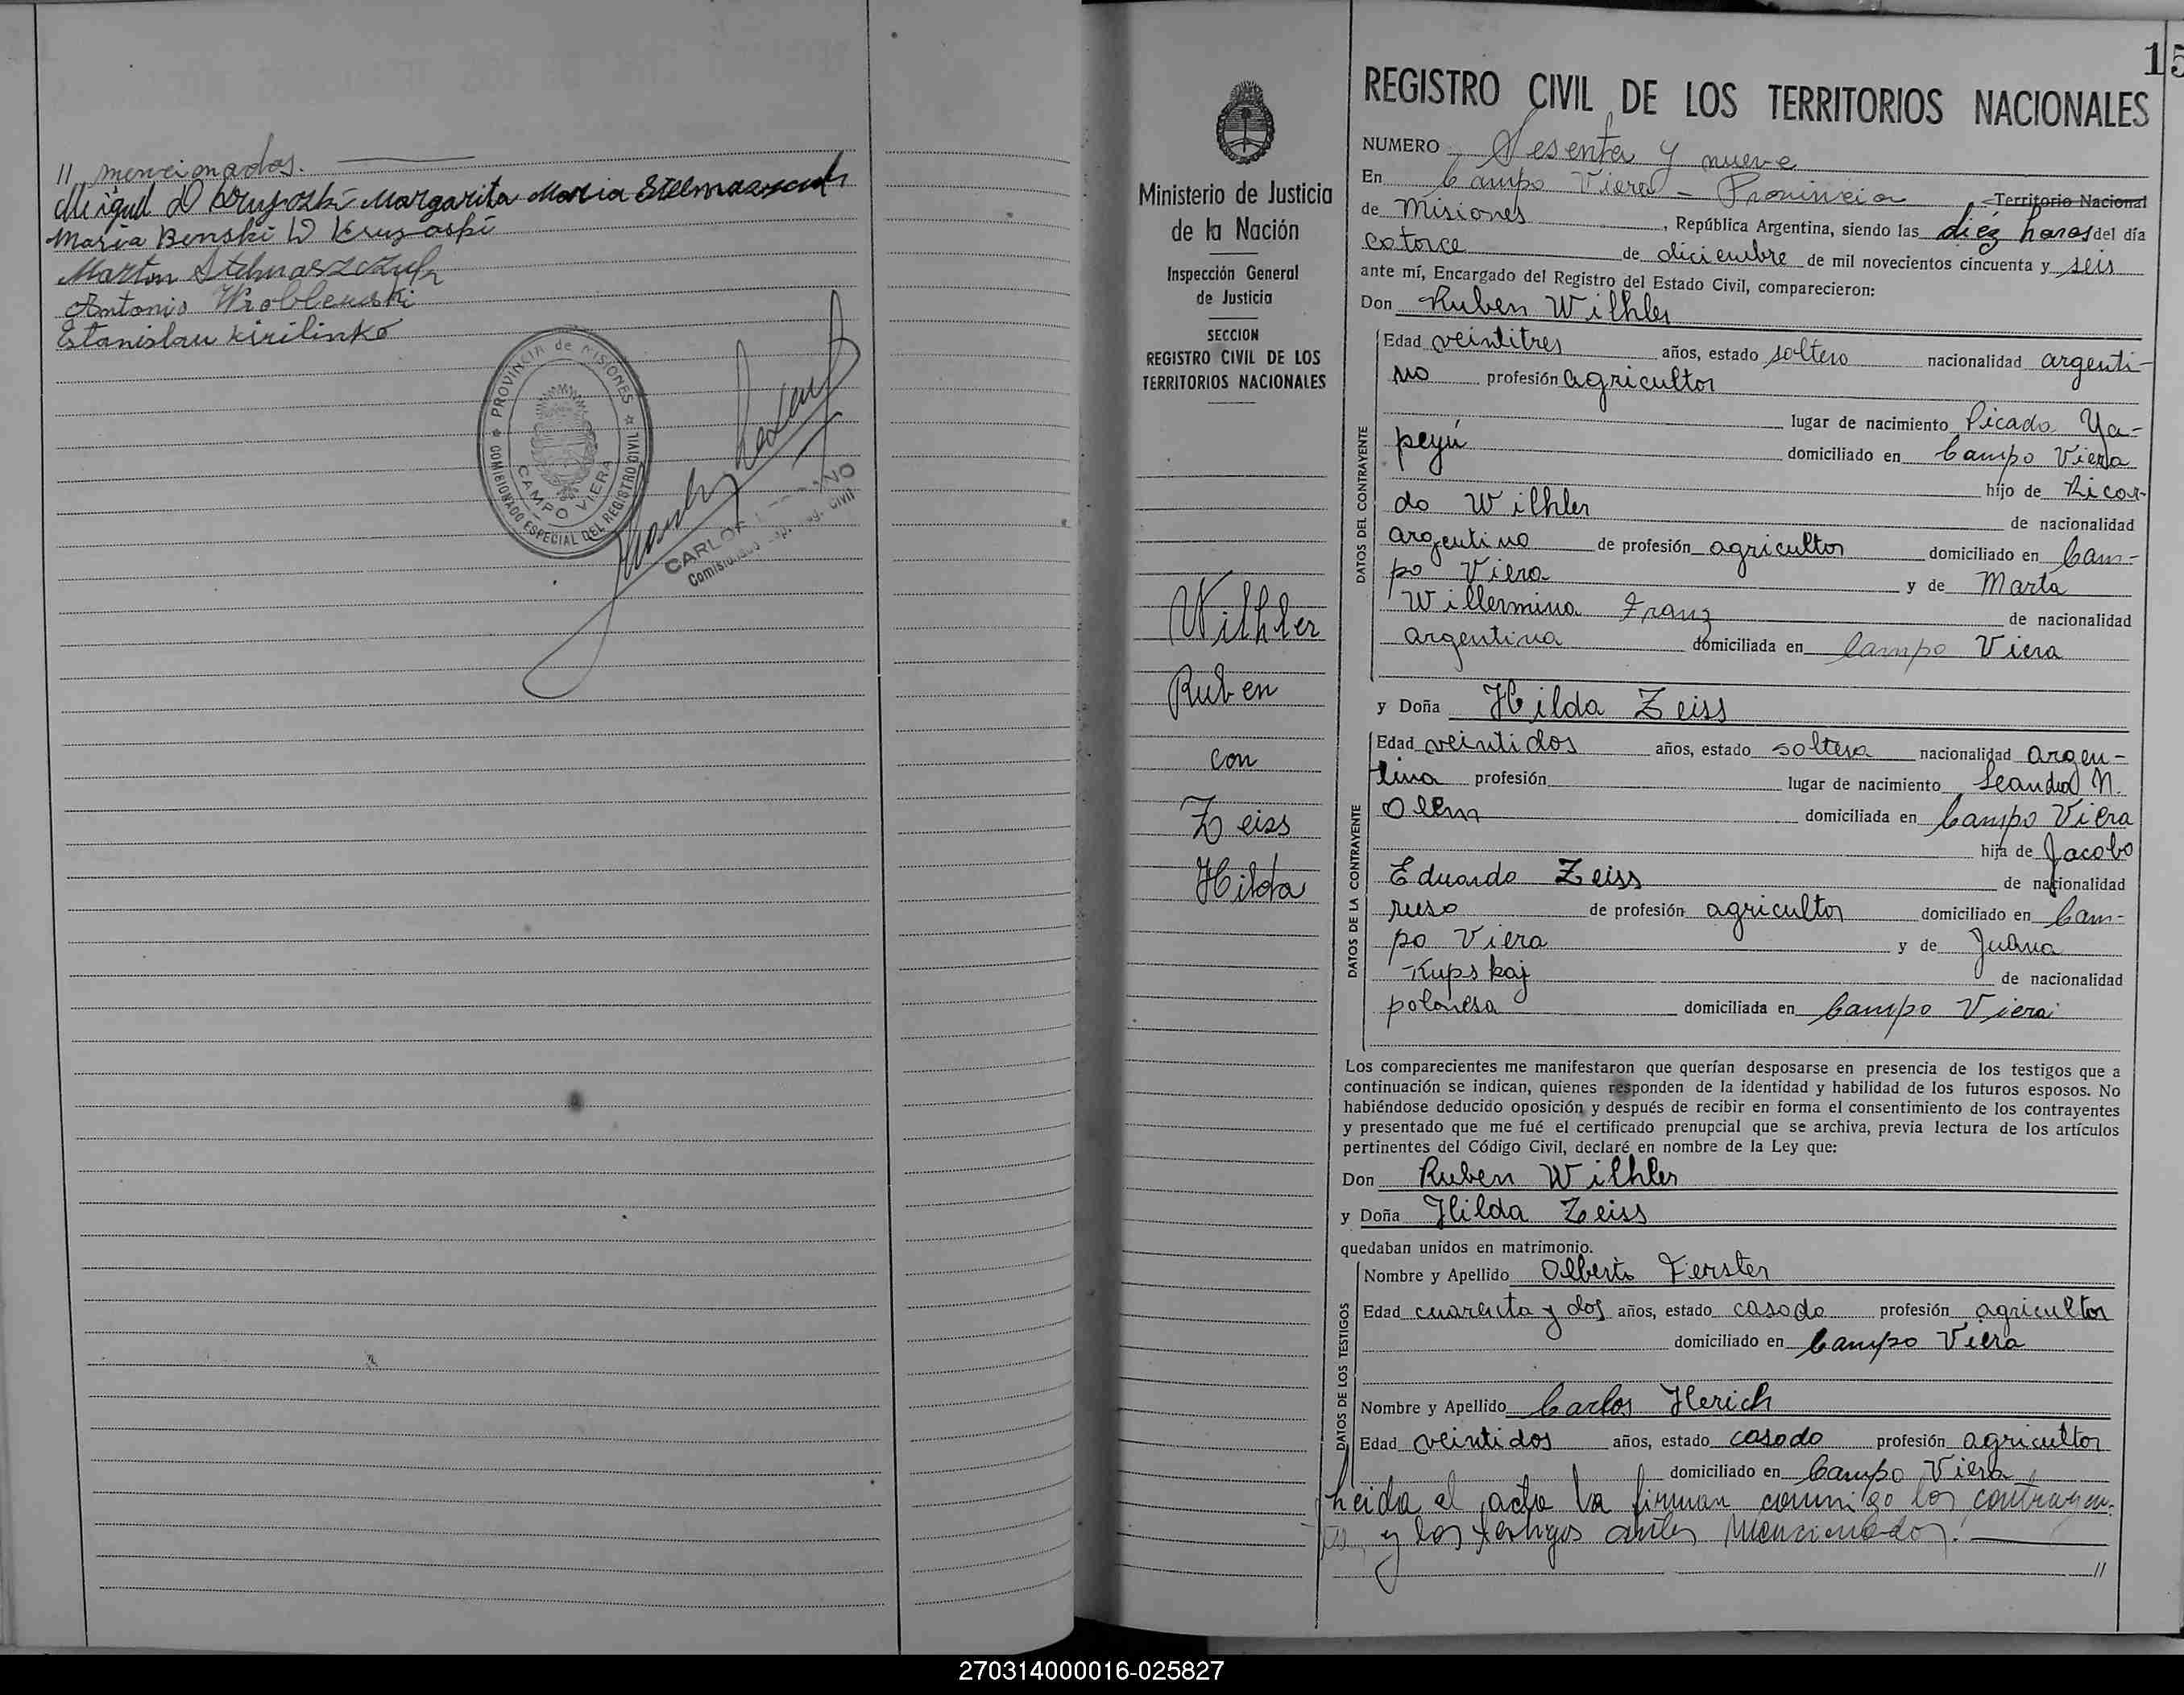 // mencionados.
Miguel D Kruzoski Margarita Maria Stelmaszczuk
Maria Benski D Kruzoski
Marton Stelmaszczuk
Antonio Wroblewski
Estanislau Kirilinko
PROVINCIA de MISIONES
COMISIONADO ESPECIAL DEL REGISTRO CIVIL
CAMPO VIERA
CARLOS
Ministerio de Justicia
de la Nación
Inspección General
de Justicia
SECCION
REGISTRO CIVIL DE LOS
TERRITORIOS NACIONALES
Wilhler
Ruben
con
Zeiss
Hilda
15
REGISTRO CIVIL DE LOS TERRITORIOS NACIONALES
NUMERO Sesenta y nueve
En Campo Viera - Provincia Territorio Nacional
de Misiones, República Argentina, siendo las diéz horas del día
catorce de diciembre de mil novecientos cincuenta y seis
ante mí, Encargado del Registro del Estado Civil, comparecieron:
Don Ruben Wilhler
DATOS DEL CONTRAYENTE
Edad veintitres años, estado soltero nacionalidad argenti-
no profesión agricultor
lugar de nacimiento Picada Ya-
peyú domiciliado en Campo Viera
hijo de Ricar-
do Wilhler de nacionalidad
argentino de profesión agricultor domiciliado en Cam-
po Viera y de Marta
Willermina Franz de nacionalidad
argentina domiciliada en Campo Viera
y Doña Hilda Zeiss
DATOS DE LA CONTRAYENTE
Edad veintidos años, estado soltera nacionalidad argen-
tina profesión lugar de nacimiento Leandro N.
Alem domiciliada en Campo Viera
hija de Jacobo
Eduardo Zeiss de nacionalidad
ruso de profesión agricultor domiciliado en Cam-
po Viera y de Juana
Kupskaj de nacionalidad
polonesa domiciliada en Campo Viera
Los comparecientes me manifestaron que querían desposarse en presencia de los testigos que a
continuación se indican, quienes responden de la identidad y habilidad de los futuros esposos. No
habiéndose deducido oposición y después de recibir en forma el consentimiento de los contrayentes
y presentado que me fué el certificado prenupcial que se archiva, previa lectura de los artículos
pertinentes del Código Civil, declaré en nombre de la Ley que:
Don Ruben Wilhler
y Doña Hilda Zeiss
quedaban unidos en matrimonio.
DATOS DE LOS TESTIGOS
Nombre y Apellido Alberto Ferster
Edad cuarenta y dos años, estado casado profesión agricultor
domiciliado en Campo Viera
Nombre y Apellido Carlos Herich
Edad veintidos años, estado casado profesión agricultor
domiciliado en Campo Viera
Leida el acta la firman conmigo los contrayen-
tes, y los testigos antes mencionados.
//
270314000016-025827